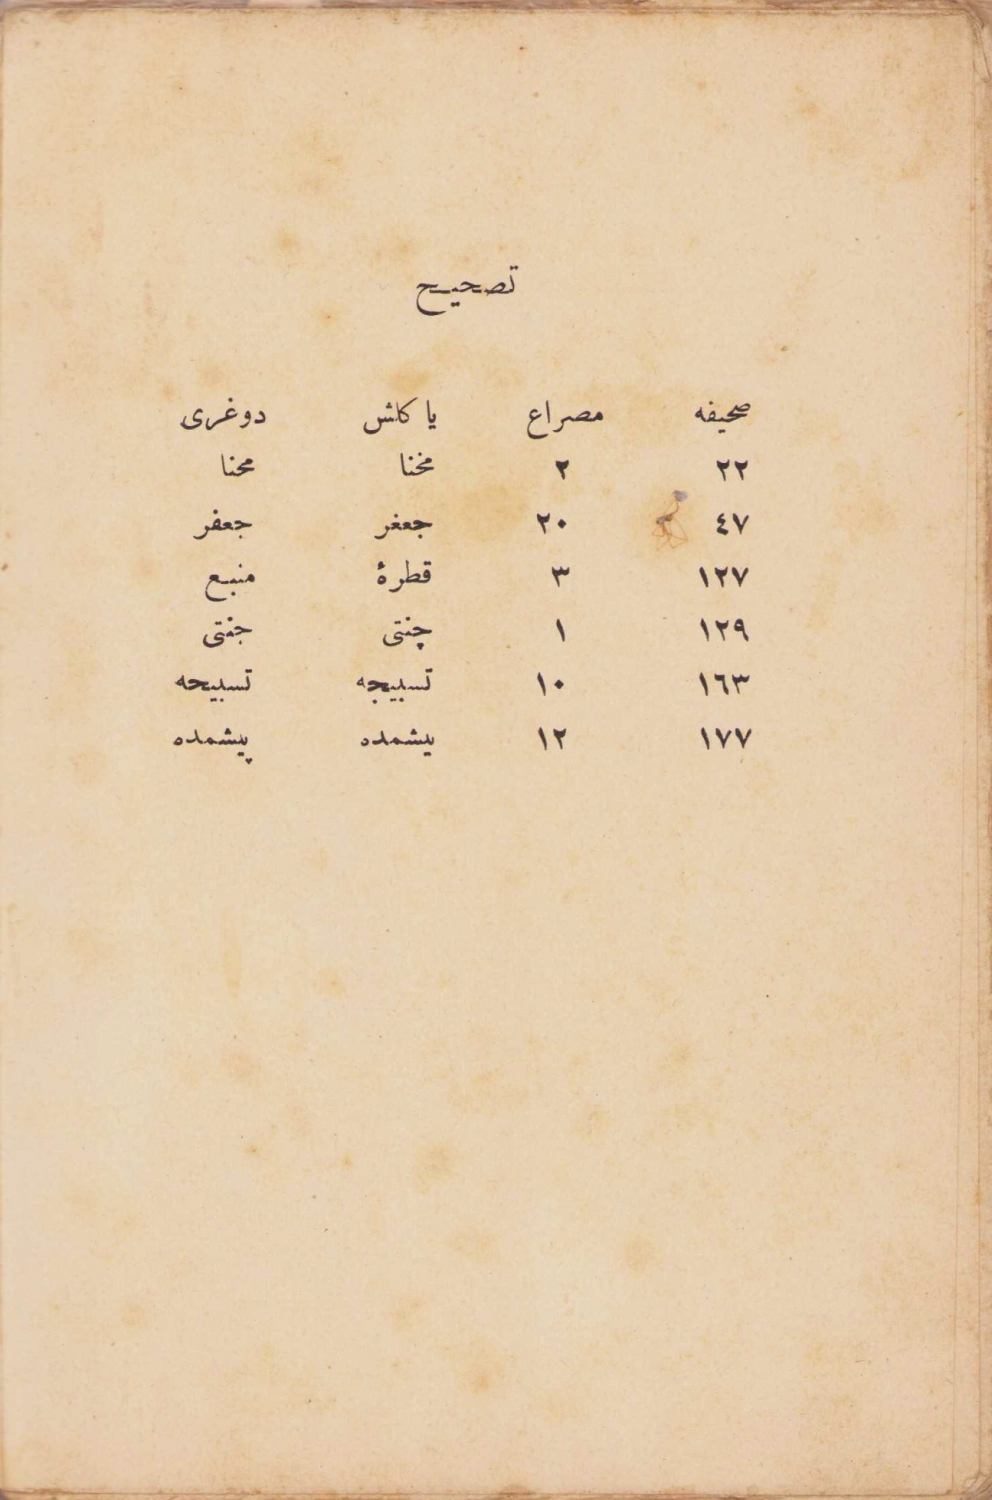 تصحیح
صحیفه مصراع یا کلش دوغری
٢٢ ٢ مخنا محنا
٤٧ ٢٠ جعغر جعفر
١٢٧ ٣ قطرهٔ منبع
١٢٩ ١ چنتی جنتی
١٦٣ ١٠ تسبیجه تسبیحه
١٧٧ ١٢ یشمده پیشمده